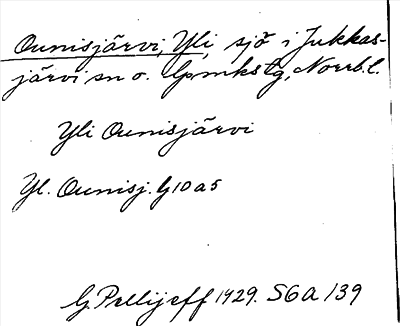 Ounisjärvi, Yli, sjö i Jukkas-
järvi sn o. lpmkstg, Norrb. l.
Yli Ounisjärvi
Yl. Ounisj. G10a5
G Pellijeff 1929. S6A 139